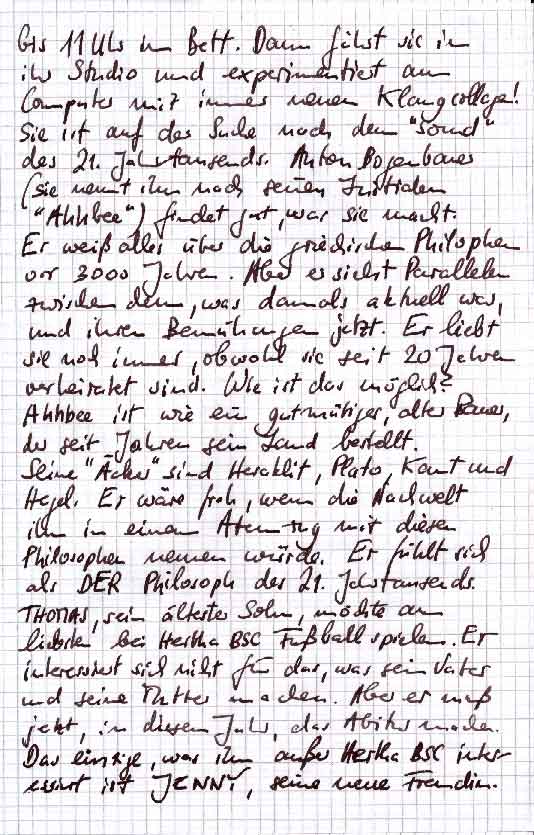 bis 11 Uhr im Bett. Dann fährt sie in
ihr Studio und experimentiert am
Computer mit immer neuen Klangcollagen!
Sie ist auf der Suche nach dem "Sound"
des 21. Jahrtausends. Anton Bogenbauer
(sie nennt ihn nach seinen Initialen
"Ahhbee") findet gut, was sie macht.
Er weiß alles über die griechischen Philophen
vor 3000 Jahren. Aber er sieht Parallelen
zwischen dem, was damals aktuell war,
und ihren Bemühungen jetzt. Er liebt
sie noch immer, obwohl sie seit 20 Jahren
verheiratet sind. Wie ist das möglich?
Ahhbee ist wie ein gutmütiger, alter Bauer,
der seit Jahren sein Land bestellt.
Seine "Äcker" sind Heraklit, Plato, Kant und
Hegel. Er wäre froh, wenn die Nachwelt
ihn in einem Atemzug mit diesen
Philosophen nennen würde. Er fühlt sich
als DER Philosoph des 21. Jahrtausends.
THOMAS, sein ältester Sohn, möchte am
liebsten bei Hertha BSC Fußball spielen. Er
interessiert sich nicht für das, was sein Vater
und seine Mutter machen. Aber er muß
jetzt, in diesem Jahr, das Abitur machen.
Das einzige, was ihn außer Hertha BSC inter-
essiert ist JENNY, seine neue Freundin.